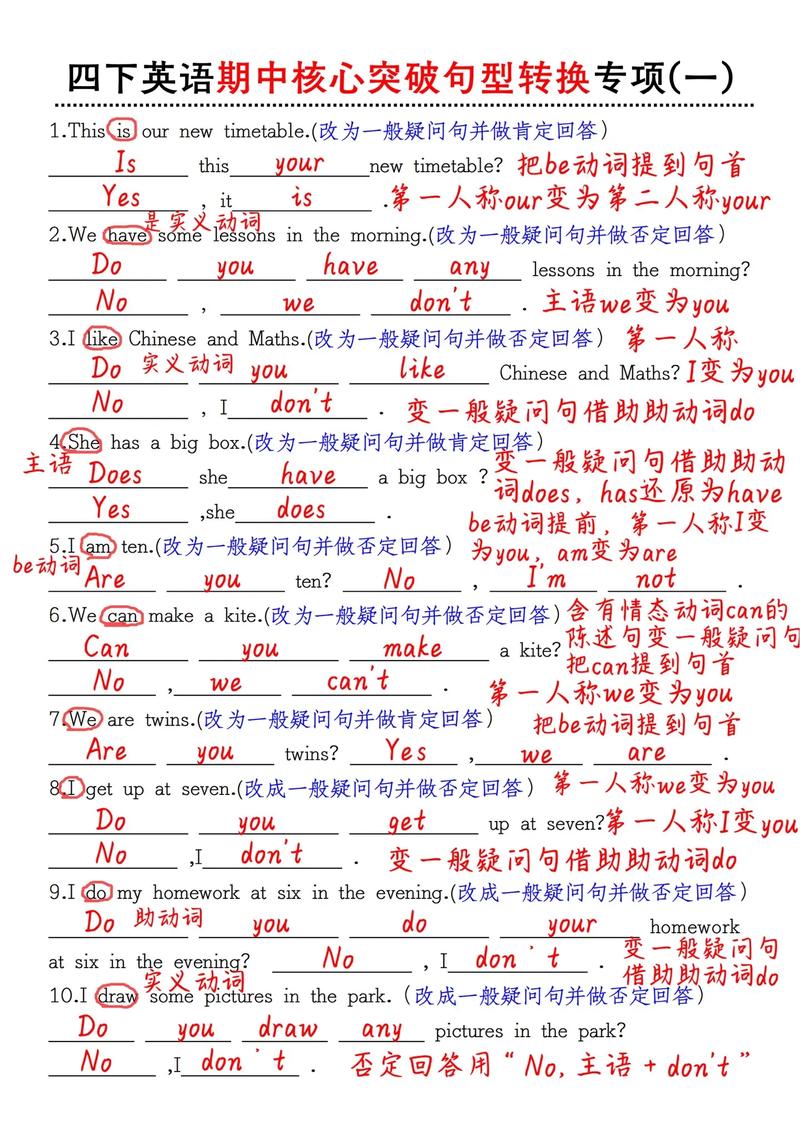 四下英语期中核心突破句型转换专项(一)
1.This is our new timetable.(改为一般疑问句并做肯定回答)
Is this your new timetable? 把be动词提到句首
Yes , it is .第一人称our变为第二人称your
是实义动词
2.We have some lessons in the morning.(改为一般疑问句并做否定回答)
Do you have any lessons in the morning?
No , we don't . 主语we变为you
3.I like Chinese and Maths.(改为一般疑问句并做否定回答) 第一人称
Do 实义动词 you like Chinese and Maths? I变为you
No , I don't . 变一般疑问句借助助动词do
4.She has a big box.(改为一般疑问句并做肯定回答)
主语 Does she have a big box ? 变一般疑问句借助助动
Yes ,she does . 词does, has还原为have
be动词提前, 第一人称I变
5.I am ten.(改为一般疑问句并做否定回答) 为you, am变为are
be动词 Are you ten? No , I'm not .
6.We can make a kite.(改为一般疑问句并做否定回答) 含有情态动词can的
Can you make a kite? 陈述句变一般疑问句
把can提到句首
No , we can't . 第一人称we变为you
7.We are twins.(改为一般疑问句并做肯定回答) 把be动词提到句首
Are you twins? Yes , we are .
8.I get up at seven.(改成一般疑问句并做否定回答) 第一人称we变为you
Do you get up at seven? 第一人称I变you
No ,I don't . 变一般疑问句借助助动词do
9.I do my homework at six in the evening.(改成一般疑问句并做否定回答)
Do 助动词 you do your homework
at six in the evening? No , I don't . 变一般疑问句
借助助动词do
实义动词
10.I draw some pictures in the park. (改成一般疑问句并做否定回答)
Do you draw any pictures in the park?
No ,I don't . 否定回答用“No, 主语 + don't”